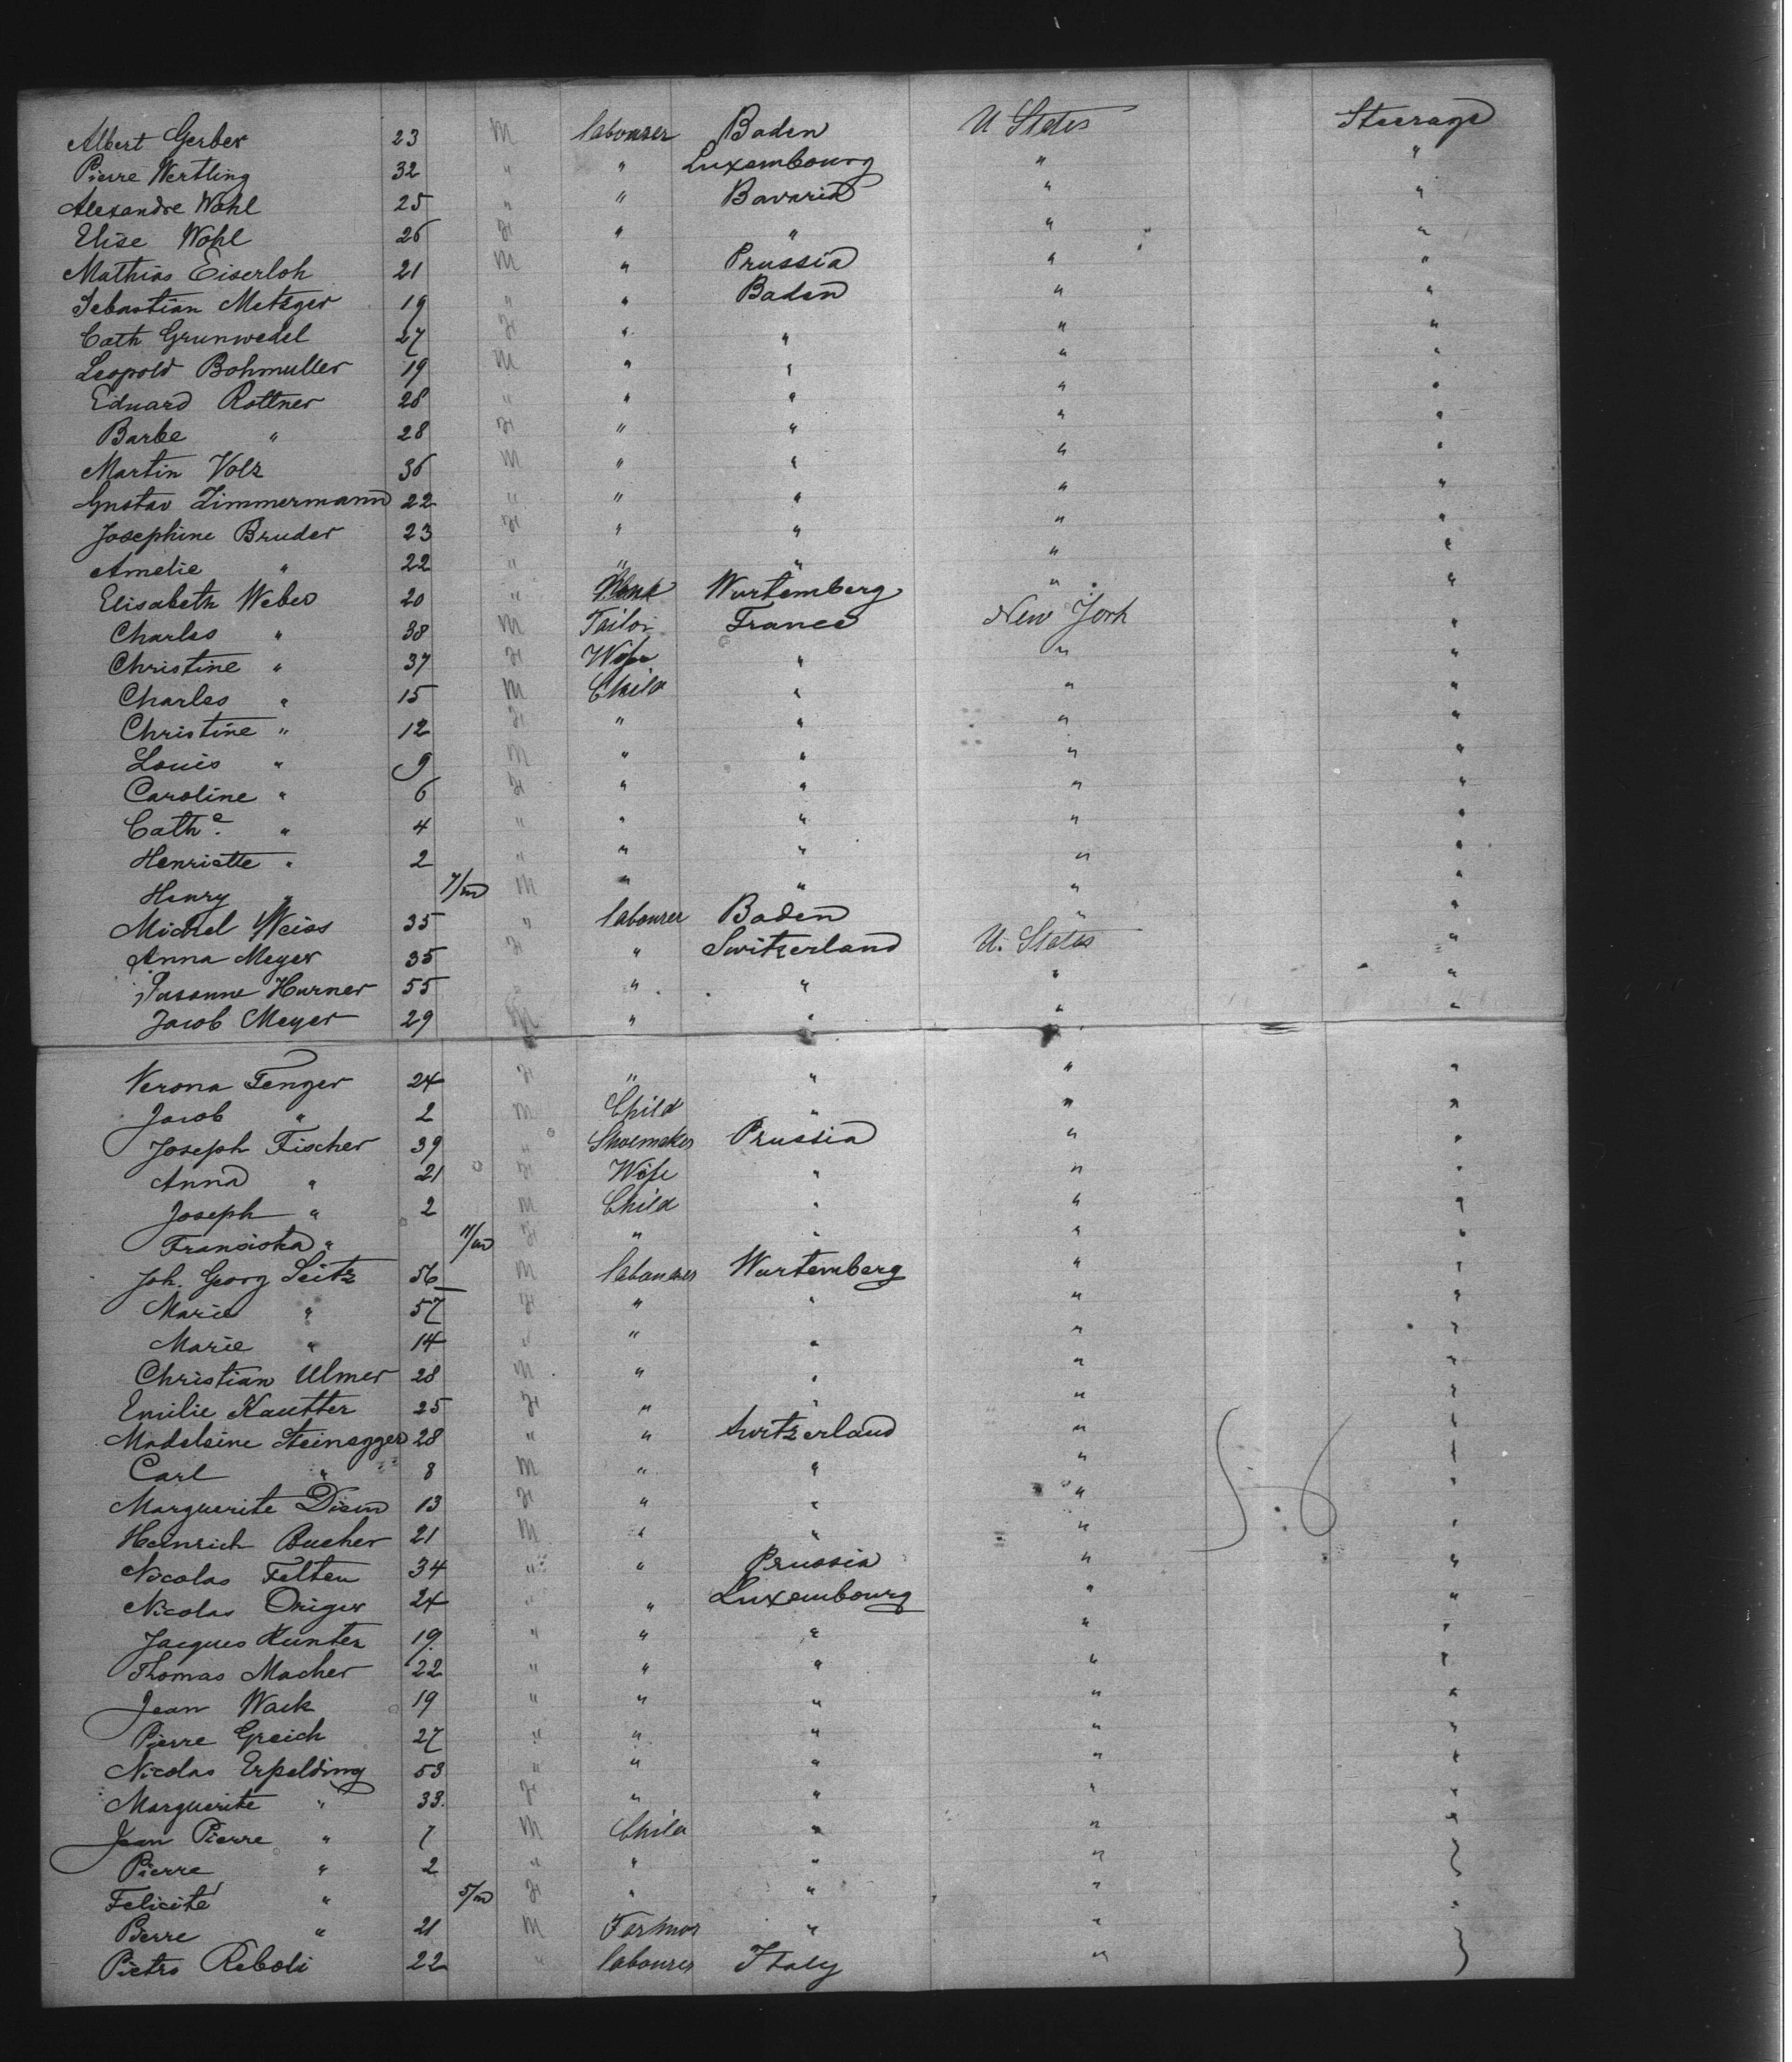 Albert Gerber 23 M labourer Baden U States Steerage
Pierre Wertling 32 " " Luxembourg " "
Alexandre Wohl 25 " " Bavaria " "
Elise Wohl 26 F " " " "
Mathias Eiserloh 21 M " Prussia " "
Sebastian Metzger 19 " " Baden " "
Cath Grunwedel 27 F " " " "
Leopold Bohmuller 19 M " " " "
Eduard Rottner 28 " " " " "
Barbe " 28 F " " " "
Martin Volz 36 M " " " "
Gustav Zimmermann 22 " " " " "
Josephine Bruder 23 F " " " "
Amelie " 22 " " " " "
Elisabeth Weber 20 " Wurtemberg " "
Charles " 38 M Tailor France New York "
Christine " 37 F Wife " " "
Charles " 15 M Child " " "
Christine " 12 F " " " "
Louis " 9 M " " " "
Caroline " 6 F " " " "
Cathe. " 4 " " " " "
Henriette " 2 " " " " "
Henry " 7/m M " " " "
Michel Weiss 35 " labourer Baden " "
Anna Meyer 35 F " Switzerland U. States "
Susanne Hurner 55 " " " " "
Jacob Meyer 29 M " " " "
Verona Fenger 24 F " " " "
Jacob " 2 M Child " " "
Joseph Fischer 39 " Shoemaker Prussia " "
Anna " 21 F Wife " " "
Joseph " 2 M Child " " "
Fransiska " 11/m F " " " "
Joh. Georg Seitz 56 M labourer Wurtemberg " "
Marie " 57 F " " " "
Marie " 14 " " " " "
Christian Ulmer 28 M " " " "
Emilie Kautter 25 F " " " "
Madeleine Steinegger 28 " " Switzerland " "
Carl " 8 M " " " "
Marguerite 13 F " " " "
Heinrich Bucher 21 M " " " "
Nicolas Felten 34 " " Prussia " "
Nicolas Origer 24 " " Luxembourg " "
Jacques Kunter 19 " " " " "
Thomas Macher 22 " " " " "
Jean Wack 19 " " " " "
Pierre Greich 27 " " " " "
Nicolas Erpelding 53 " " " " "
Marguerite " 33. F " " " "
Jean Pierre " 7 M Child " " "
Pierre " 2 " " " " "
Felicité " 5/m F " " " "
Pierre " 21 M Farmer " " "
Pietro Reboli 22 " labourer Italy " "